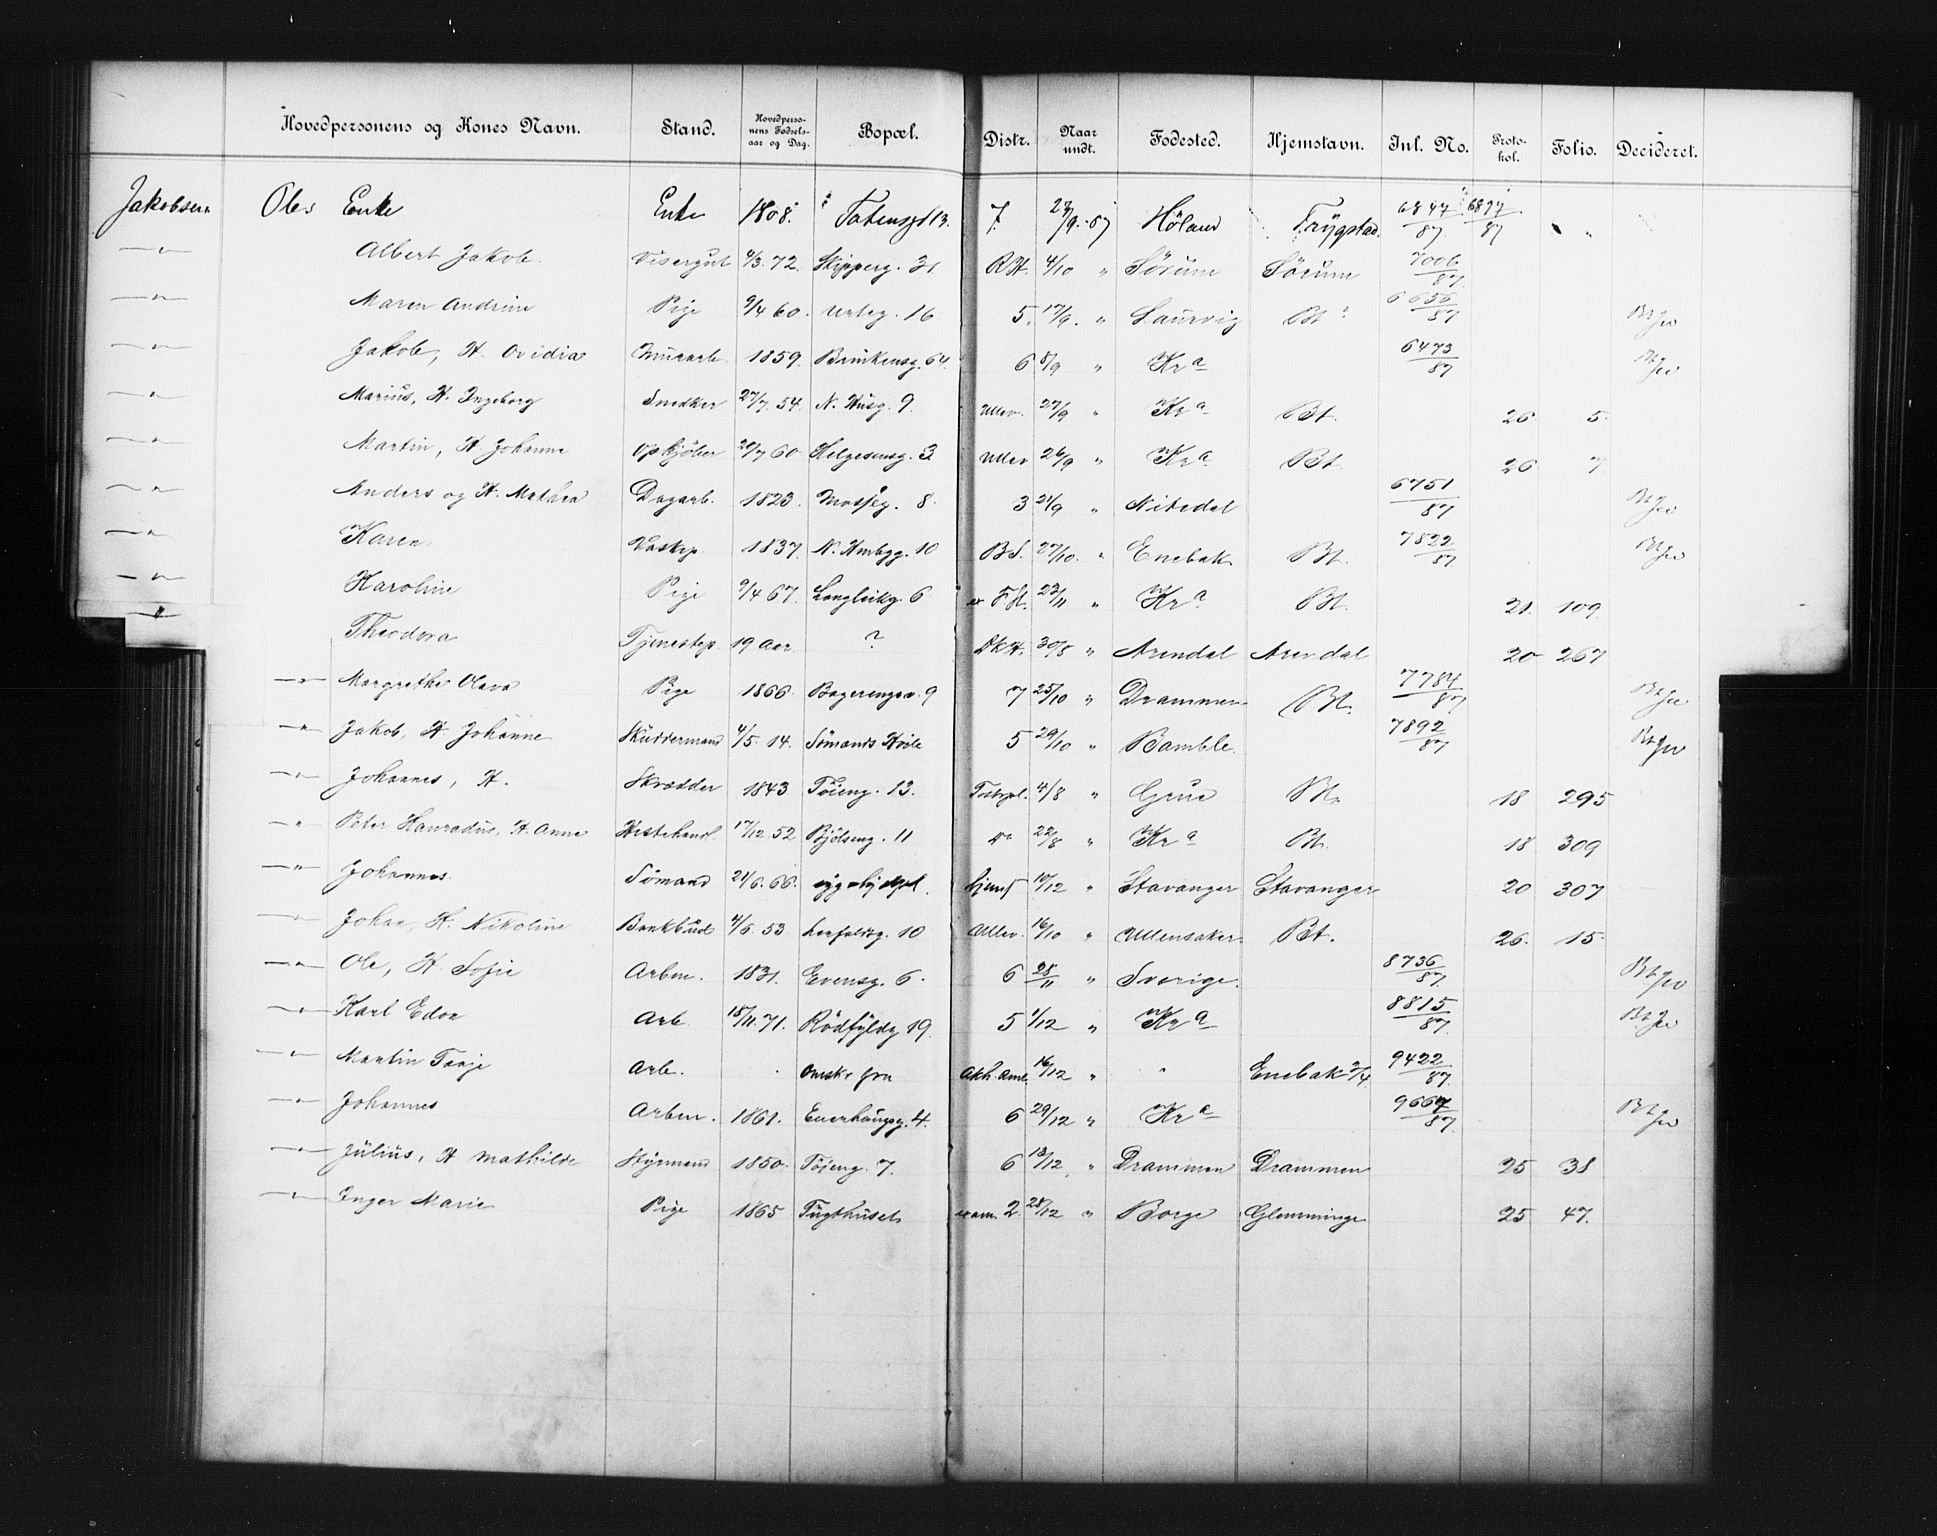 Hovedpersonens og Kones Navn. Stand. Hovedperso-nens Fødsels-aar og Dag. Bopæl. Distr. Naar undt. Fødested. Hjemstavn. Inl. No. Proto-kol. Folio. Decideret.
Jakobsen Oles Enke Enke 1808. 7. 23/9.-87 Höland Trygstad. 6847/87. 6897/87 " "
—"— Albert Jakob. Visergut 9/3. 72. Skipperg. 31 R.St. 4/10 " Sörum Sörum 7006/87
—"— Maren Andrine Pige 9/4 60. Urteg. 16 5. 17/9. " Laurvig Bt ? 6656/87
—"— Jakob, H. Ovidia Murarb. 1859. Brinkensg. 64. 6 8/9 " Kra 6473/87
—"— Marius, H. Ingeborg Snedker 27/7. 54. N. Husg. 9. Ullev. 27/9 " Kra Bt. 26 5.
—"— Martin, H. Johanne Opkjöber 20/7 60. Helgesensg. 3 Ullev 26/9 " Kra Bt. 26. 7
—"— Anders og H. Mathea Dagarb. 1823. Mosseg. 8. 3 21/9 " Nitedal 6751/87
—"— Karen Vaskep. 1837. 10 B.S. 27/10. " Enebak Bt. 7822/87
—"— Karoline Pige 9/4 67. Langleikg. 6 23/11 " Kra Bt. 21. 109.
" Theodora Tjenestep 19 Aar ? 30/8 " Arendal Arendal 20 267
—"— Margrethe Olava Pige 1866. 9 7 25/10 " Drammen Bt. 7784/87
—"— Jakob, H. Johanne Skuddermand 4/5. 14. Sömands Hvile 5 29/10 " Bamble. 7892/87
—"— Johannes, H. Skrædder 1843 Töieng. 13. 4/8 " Grue Bt. 18 295
—"— Peter H. Anne Hestehandl. 17/12 52 Bjölseng. 11 Do 22/8 " Kra Bt. 18 309
—"— Johannes. Sömand 21/6. 66. 10/12 " Stavanger Stavanger 20 307
—"— Johan, H. Nikoline Bankbud 4/6. 53 10 Ullev. 16/10 " Ullensaker. Bt. 26. 15.
—"— Ole, H. Sofie Arbm. 1831. Evensg. 6. 6 28/11 " Sverige. 8736/87.
—"— Karl Edor Arb 18/11. 71. Rödfyldg 19. 5 1/12 " Kra 8815/87.
—"— Martin Arb. Omskr fra Akh. Amt. 16/12 " " Enebak 2/4 9422/87.
—"— Johannes Arbm. 1861. Enerhaugsg. 4. 6 29/12 " Kra 87.
—"— Julius, H Mathilde Styrmand 1850. Töieng. 7. 6 13/12. " Drammen Drammen 25 38
—"— Inger Marie Pige 1865 Tugthuset 2. 28/12 " Borge Glemminge 25 47.